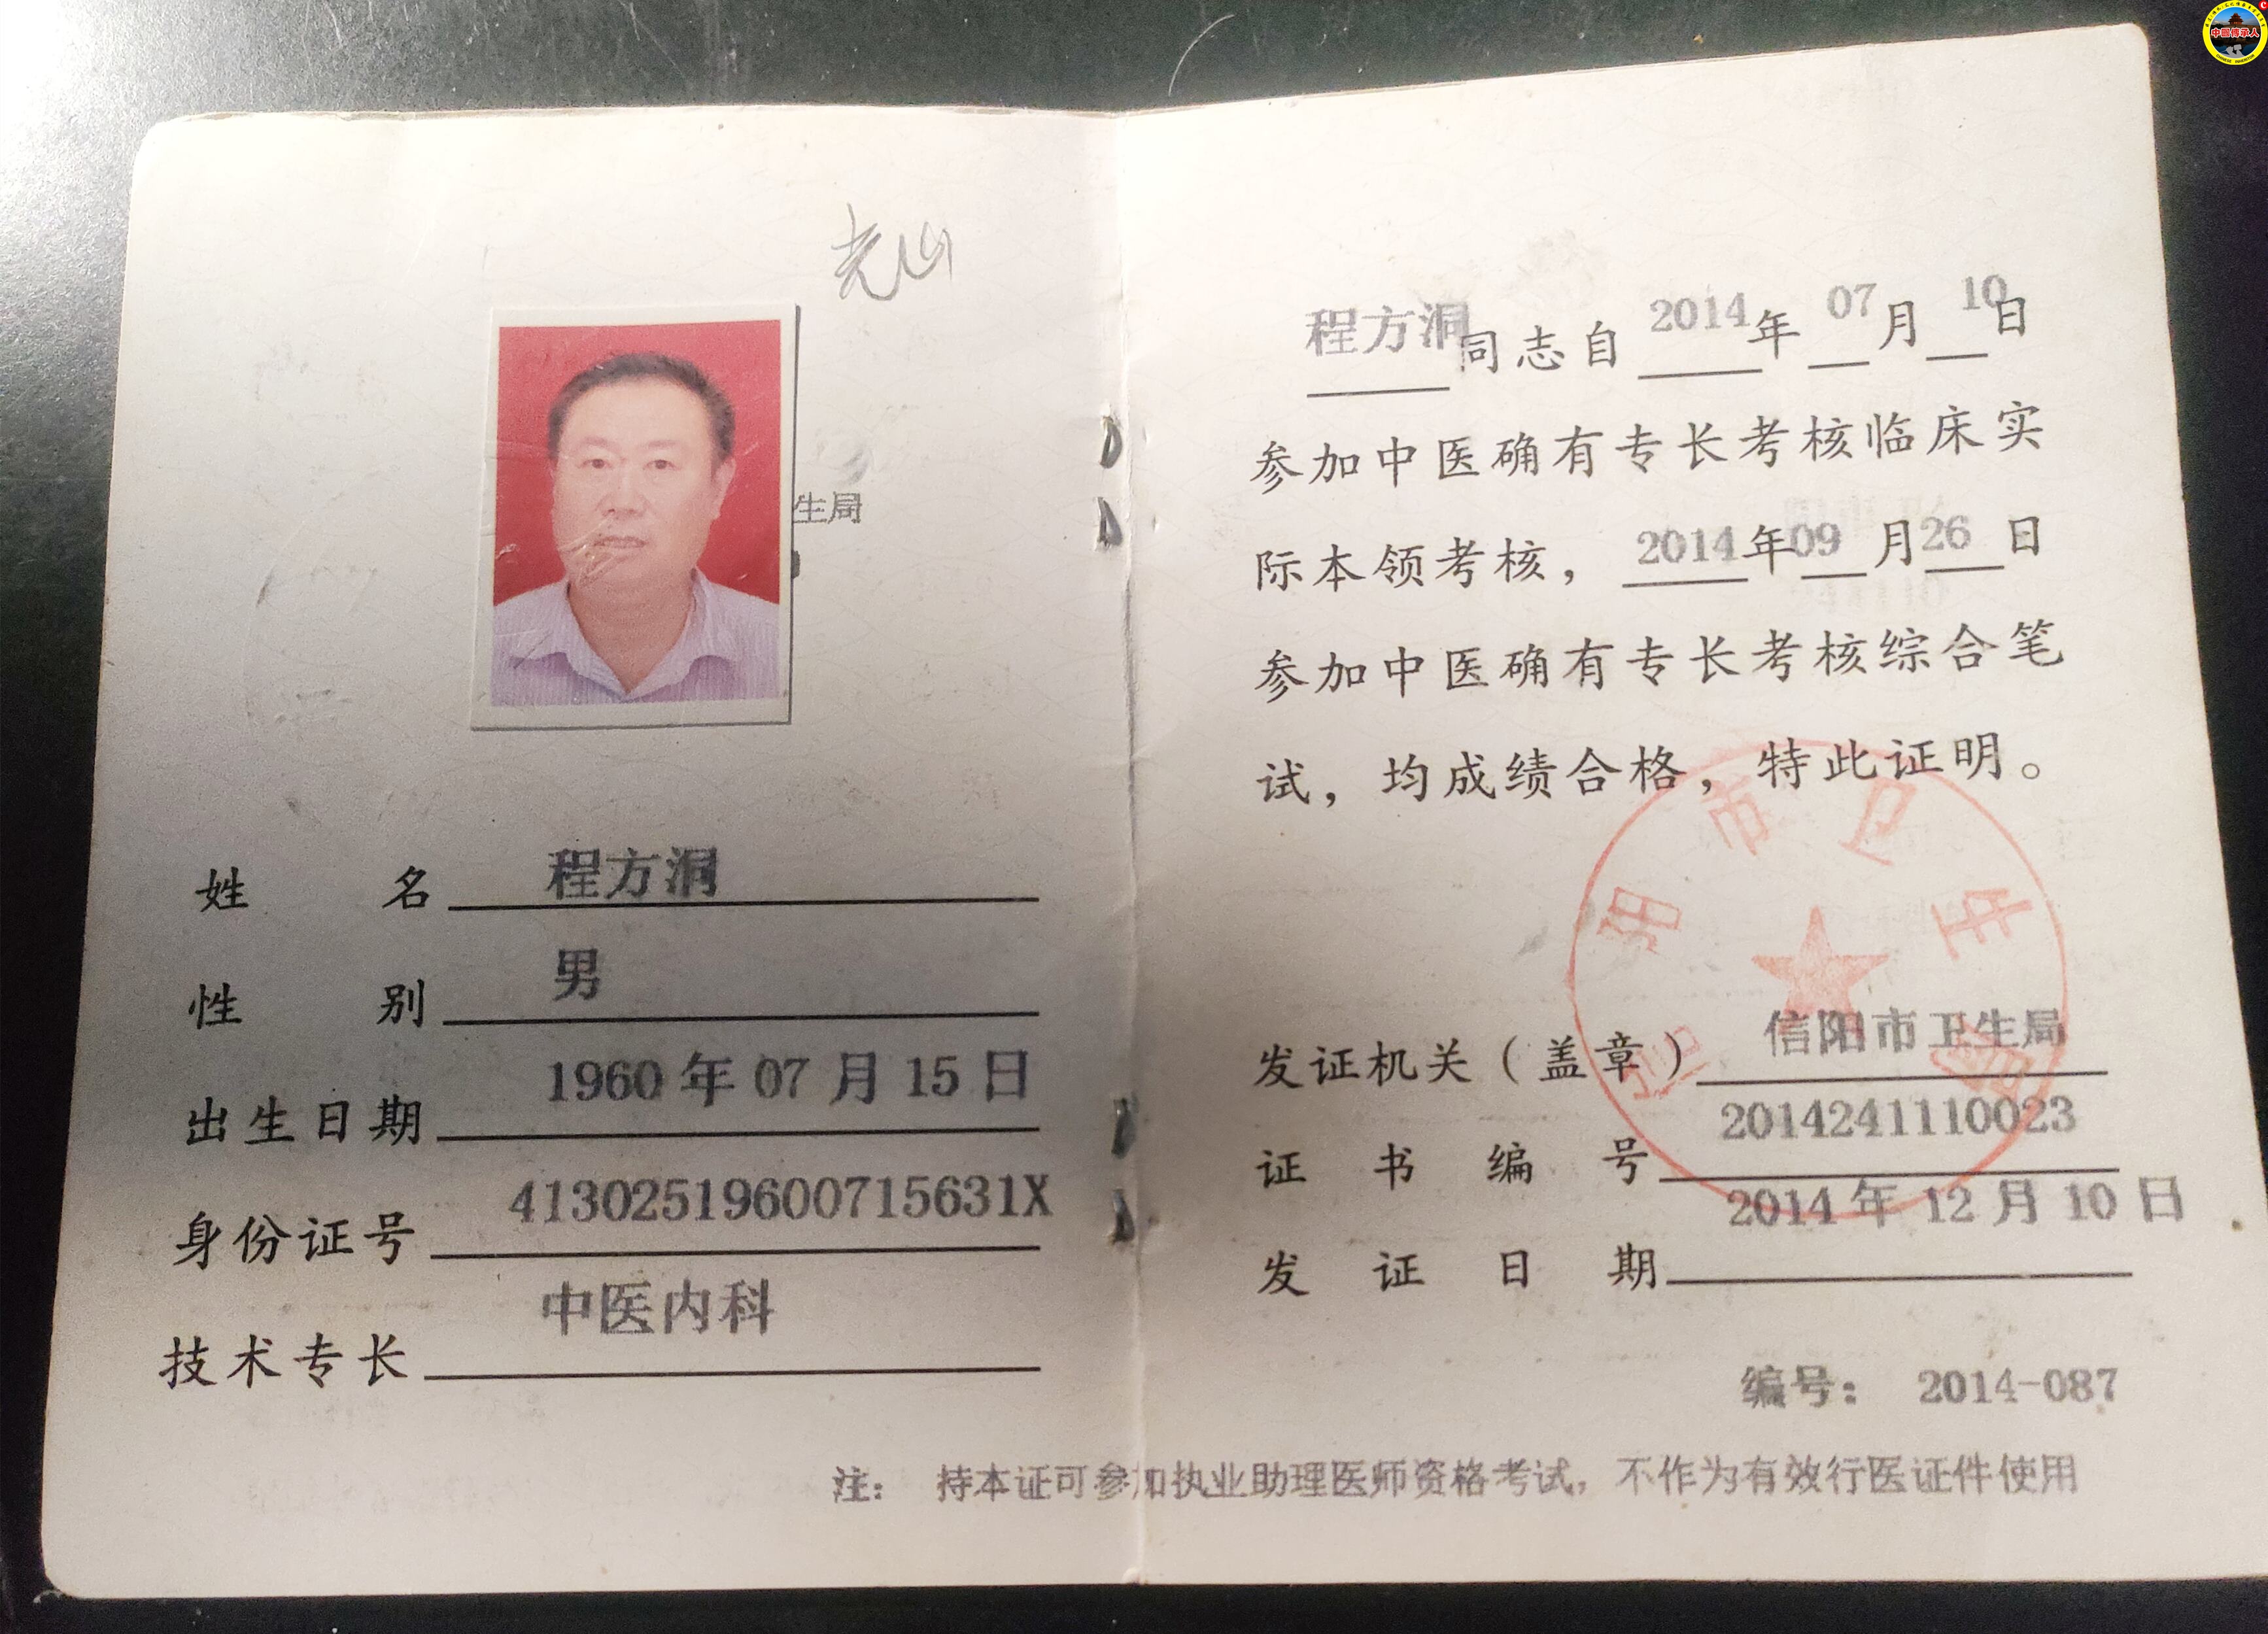 光山
生局
姓名 程方洞
性别 男
出生日期 1960年07月15日
身份证号 41302519600715631X
技术专长 中医内科
程方洞同志自2014年07月10日
参加中医确有专长考核临床实
际本领考核，2014年09月26日
参加中医确有专长考核综合笔
试，均成绩合格，特此证明。
信阳市卫生局
发证机关（盖章） 信阳市卫生局
证书编号 2014241110023
发证日期 2014年12月10日
编号： 2014-087
注： 持本证可参加执业助理医师资格考试，不作为有效行医证件使用
中医传承人